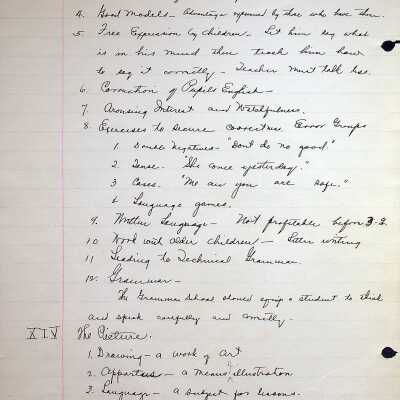 4. Good Models - Advantage expressed by those who have them.
5. Free Expression by Children. Let him say what
is in his mind then teach him how
to say it correctly - Teacher must talk less.
6. Correction of Pupils English -
7. Arousing Interest and Watchfulness.
8. Exercises to secure correction Error Groups
1. Double Negatives - "Dont do no good"
2. Tense. "She once yesterday."
3 Cases. "Me and you are safe."
6 Language games.
9. Written Language - Not profitable before 3-2.
10 Work with older children - Letter writing
11 Leading to Technical Grammar.
12. Grammar -
The Grammar School should equip a student to think
and speak carefully and correctly.
XIV The Picture.
1. Drawing - a work of art
2. Apparatus - a means illustration
3. Language - a subject for lessons.